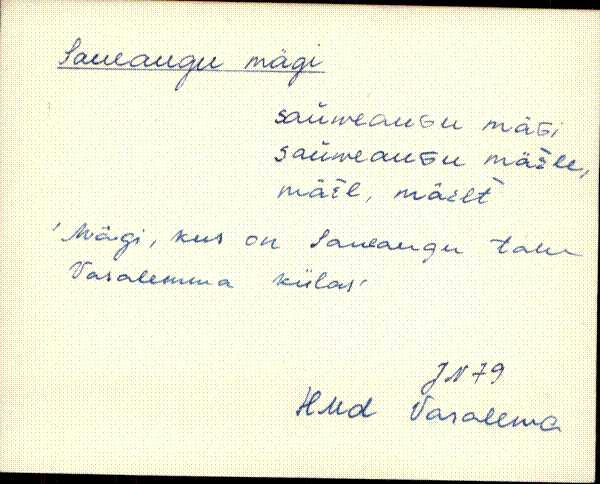 Saueaugu mägi
saùweauGu mäGi
saùweauGu mäèle,
mäèl, mäèlt
'Mägi, kus on Saueaugu talu
Vasalemma külas'
JN 79
HMd Vasalemma